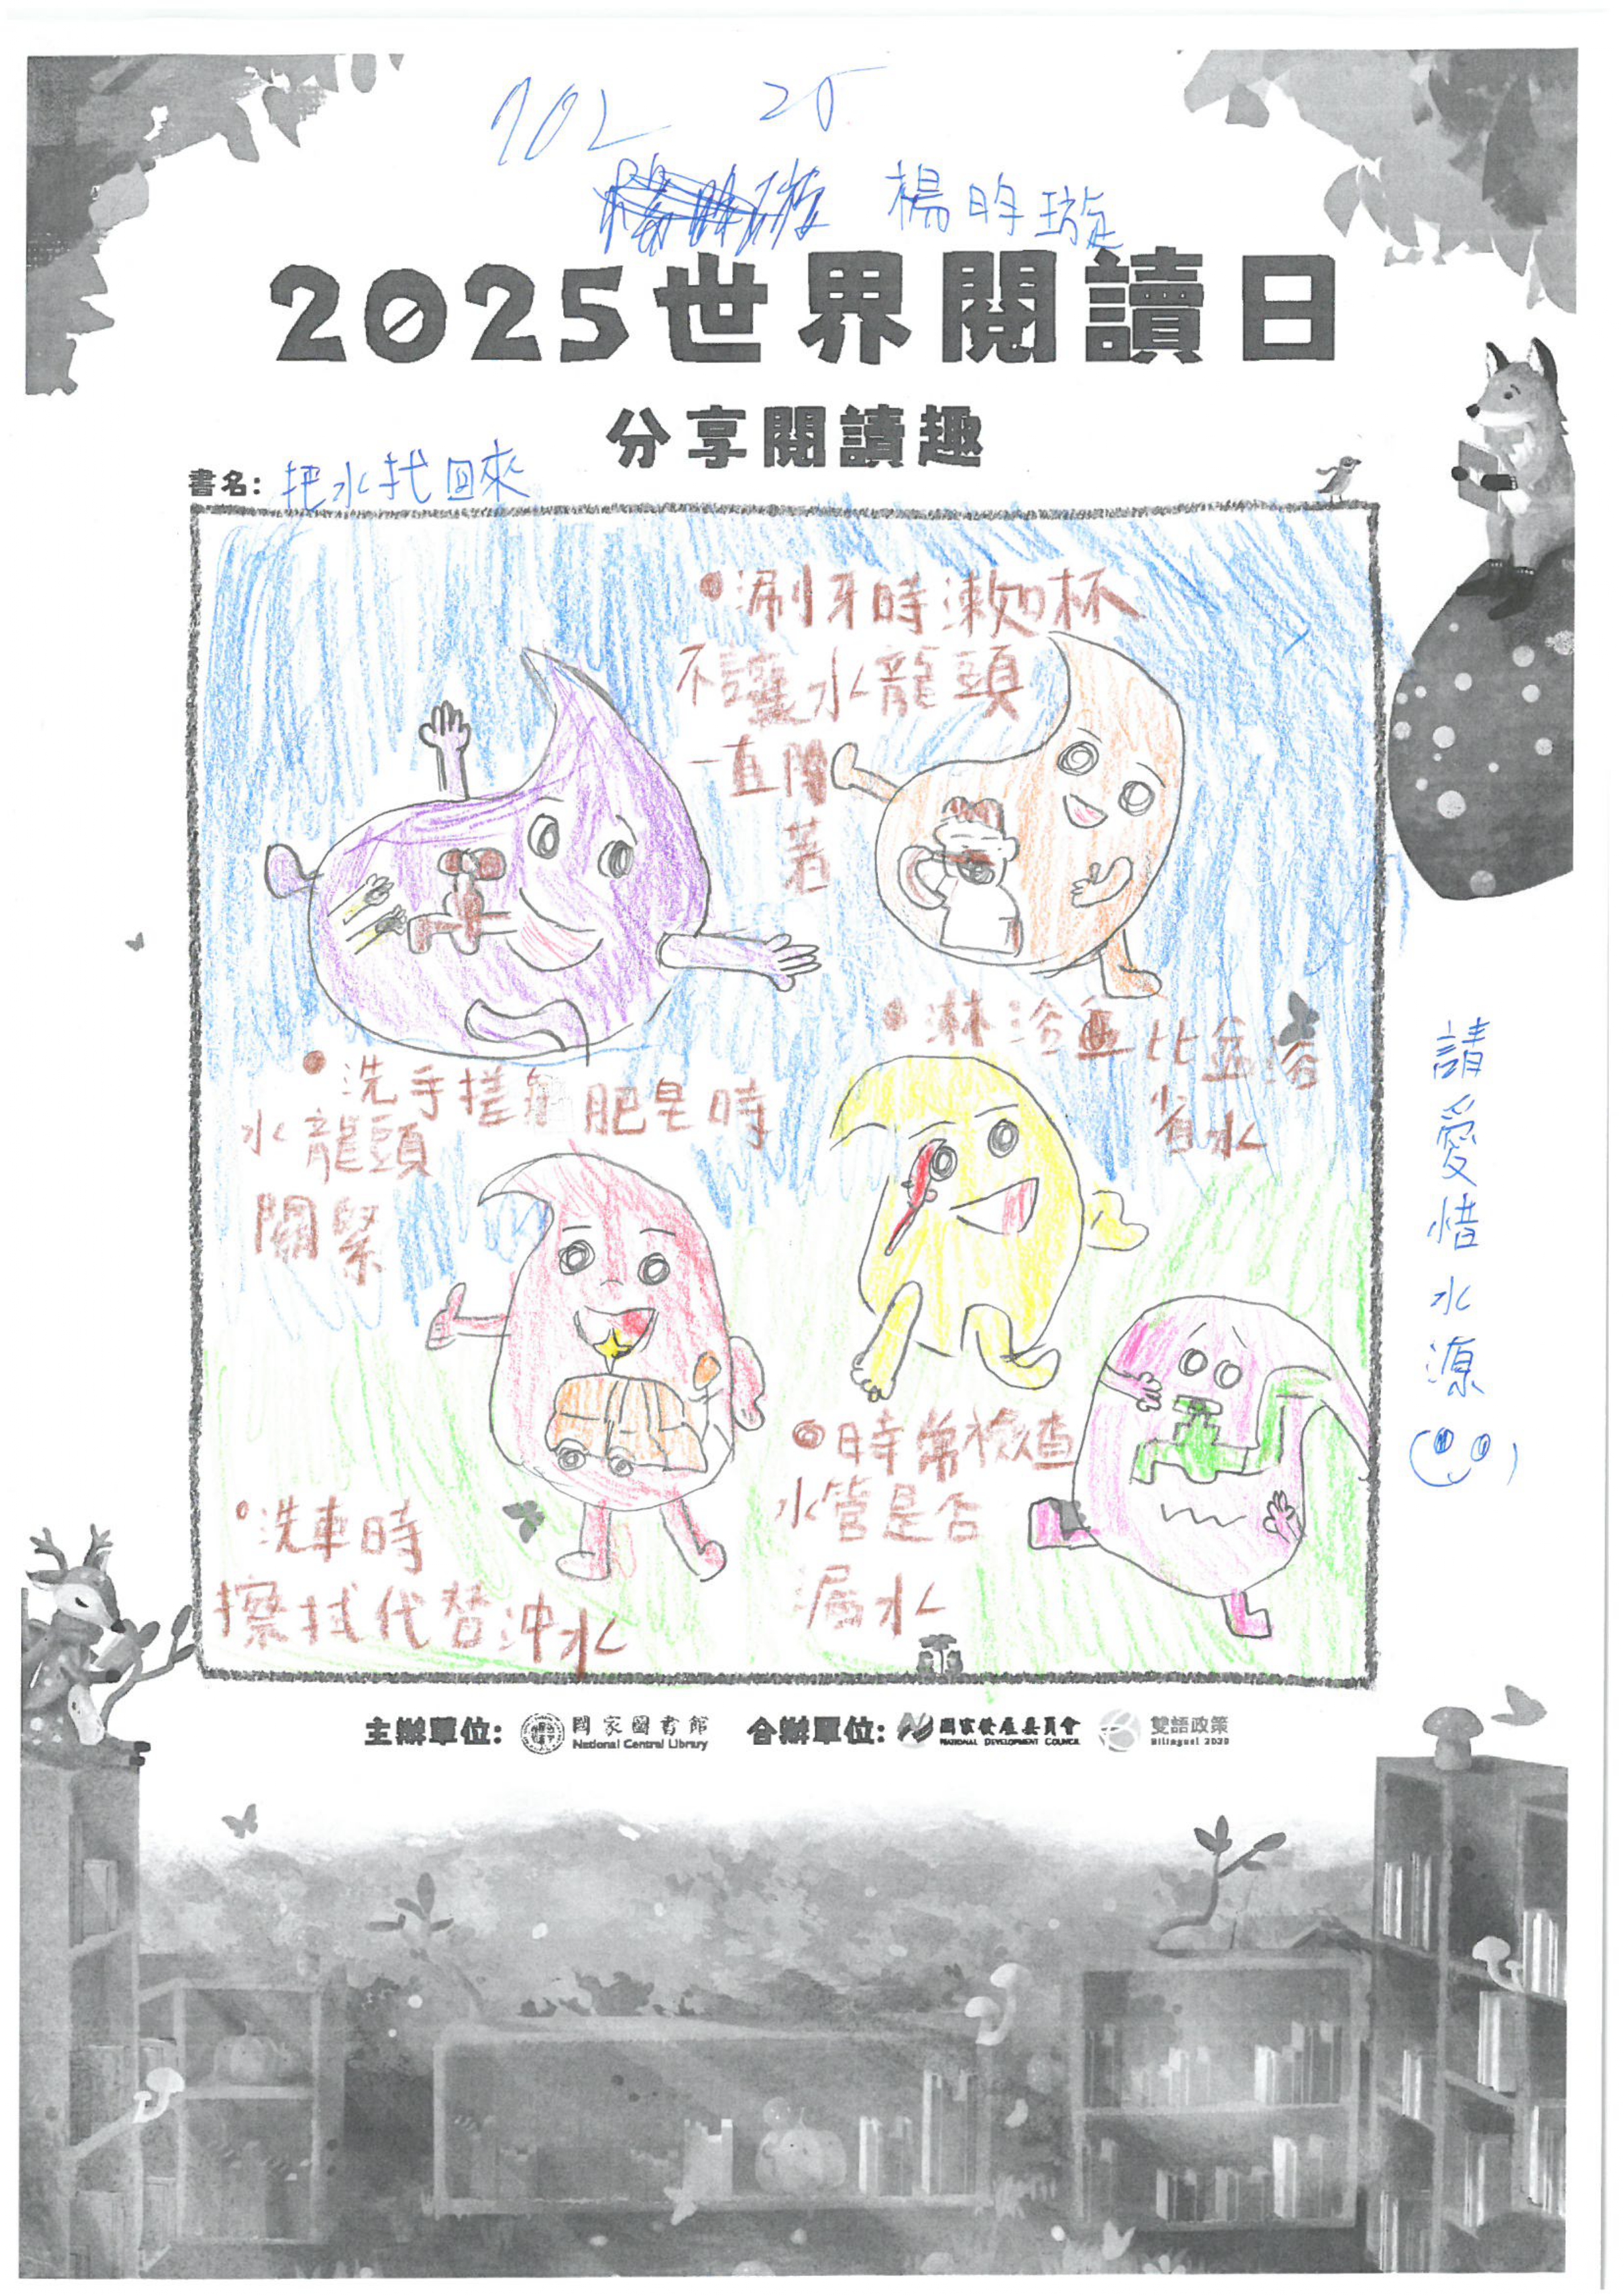 702 20
楊昀璇
2025世界閱讀日
分享閱讀趣
書名：把水找回來
•刷牙時漱口杯
不讓水龍頭
一直開
著
•洗手搓 肥皂時
水龍頭
關緊
•淋浴 比盆浴
省水
•洗車時
擦拭代替沖水
•時常檢查
水管是否
漏水
請愛惜水源
主辦單位：國家圖書館 National Central Library 合辦單位：國家發展委員會 NATIONAL DEVELOPMENT COUNCIL 雙語政策 Bilingual 2030